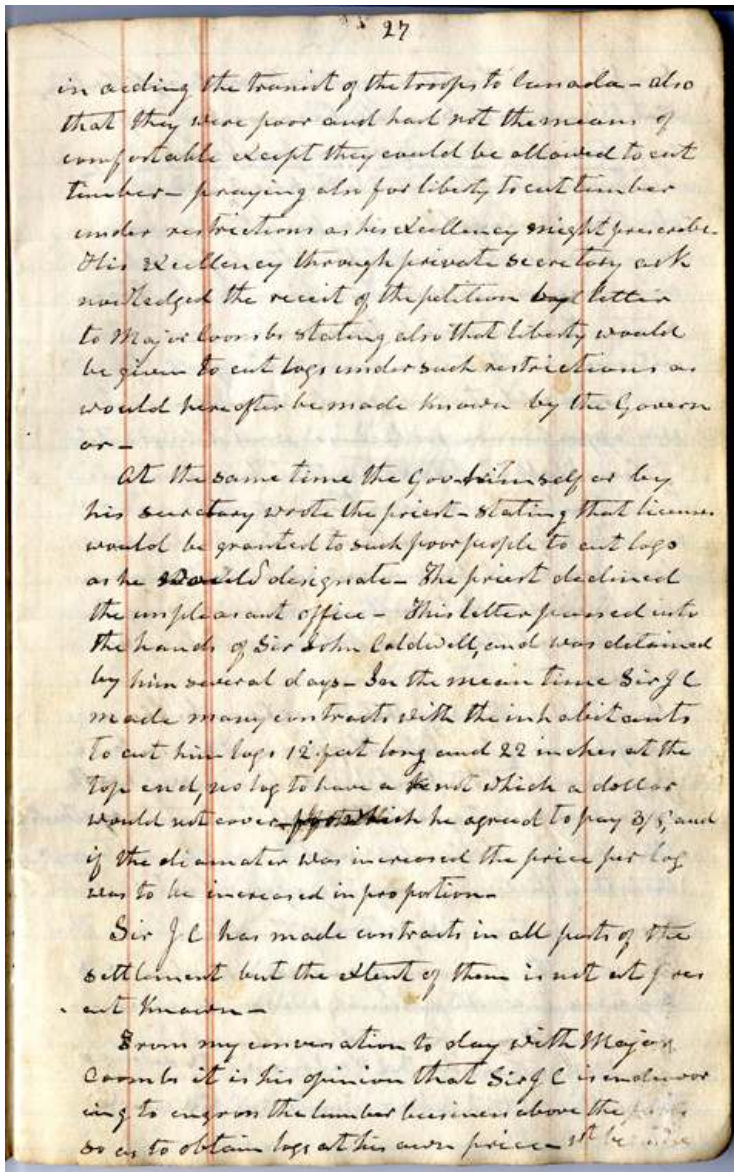 27
in aiding the transit of the troops to Canada - also
that they were poor and had not the means of
comfortable except they could be allowed to cut
timber - praying also for liberty to cut timber
under restrictions as his Excellency might prescribe.
His Excellency through private secretary ack
nowledged the receit of the petition by letter
to Major Coombs stating also that liberty would
be given to cut logs under such restrictions as
would hereafter be made known by the Govern
or -
At the same time the Gov himself or by
his secretary wrote the priest - stating that licenses
would be granted to such poor people to cut logs
as he should designate - The priest declined
the unpleasant office - This letter passed into
the hands of Sir John Caldwell, and was detained
by him several days - In the mean time Sir J C
made many contracts with the inhabitants
to cut him logs 12 feet long and 22 inches at the
top end, no log to have a knot which a dollar
would not cover - for which he agreed to pay 3/ and
if the diamater was increased the price per log
was to be increased in proportion -
Sir J C has made contracts in all parts of the
settlement but the extent of them is not at pres
ent known -
From my conversation to day with Major
Coombs it is his opinion that Sir J C is endeavor
ing to engross the lumber business above the
so as to obtain logs at his own price - 1st